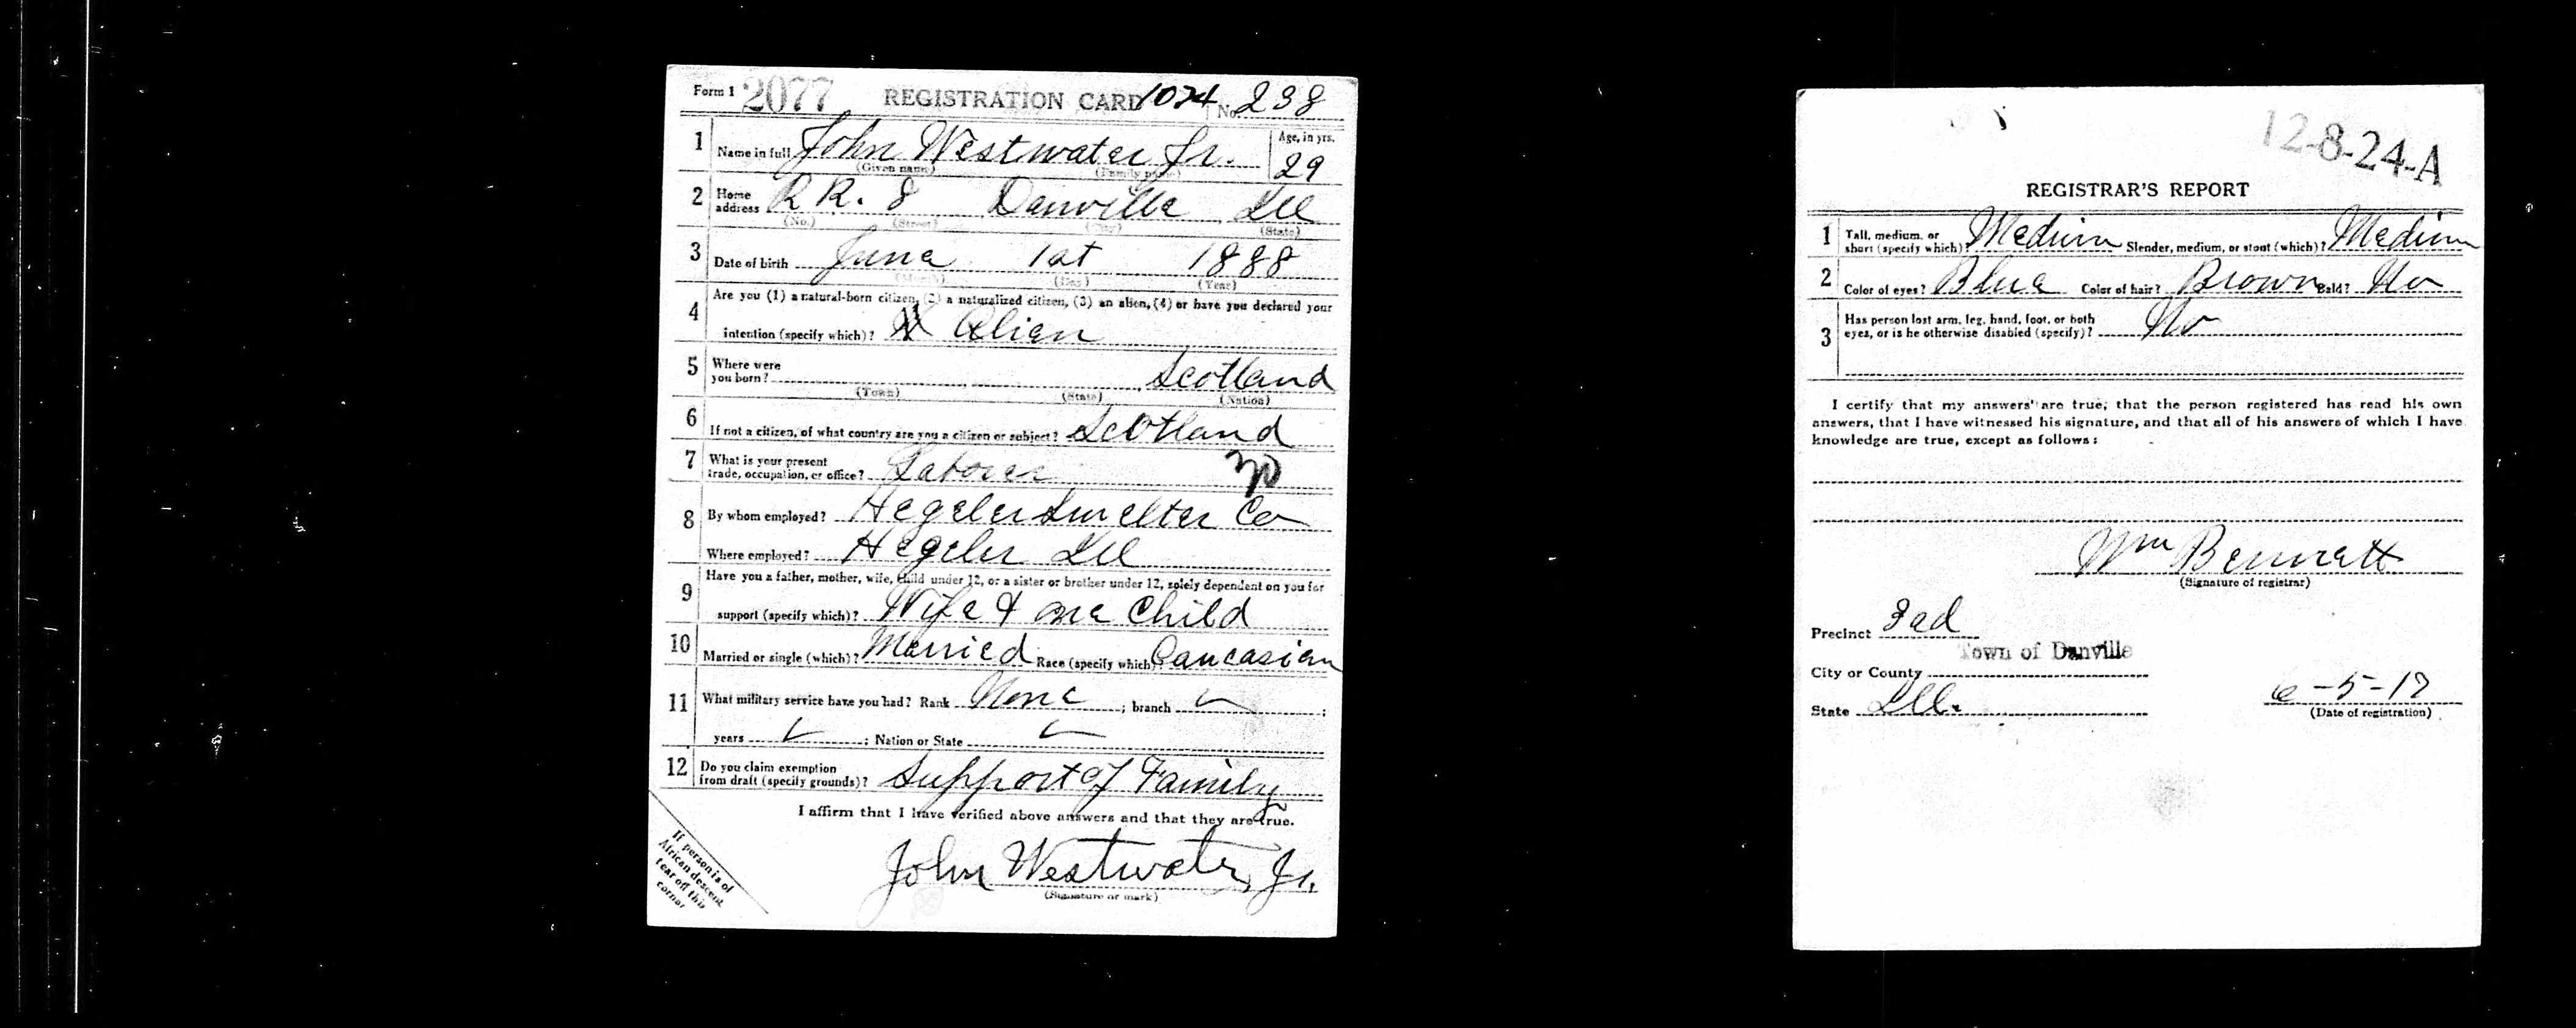 Form 1 2077 REGISTRATION CARD 1024 No. 238
1 Name in full John Westwater Jr. Age, in yrs. 29
(Given name) (Family name)
2 Home address R R. 8 Danville Ill
(No.) (Street) (City) (State)
3 Date of birth June 1st 1888
(Month) (Day) (Year)
4 Are you (1) a natural-born citizen, (2) a naturalized citizen, (3) an alien, (4) or have you declared your
intention (specify which)? Alien
5 Where were you born? Scotland
(Town) (State) (Nation)
6 If not a citizen, of what country are you a citizen or subject? Scotland
7 What is your present trade, occupation, or office? Laborer
8 By whom employed? Hegeler Smelter Co
Where employed? Hegeler Ill
9 Have you a father, mother, wife, child under 12, or a sister or brother under 12, solely dependent on you for
support (specify which)? Wife & one Child
10 Married or single (which)? Married Race (specify which)? Caucasian
11 What military service have you had? Rank None ; branch ;
years ; Nation or State
12 Do you claim exemption from draft (specify grounds)? Support of Family
I affirm that I have verified above answers and that they are true.
John Westwater, Jr.
(Signature or mark)
If person is of
African descent
tear off this
corner
12-8-24-A
REGISTRAR'S REPORT
1 Tall, medium, or short (specify which)? Medium Slender, medium, or stout (which)? Medium
2 Color of eyes? Blue Color of hair? Brown Bald? No
3 Has person lost arm, leg, hand, foot, or both
eyes, or is he otherwise disabled (specify)? No
I certify that my answers are true; that the person registered has read his own
answers, that I have witnessed his signature, and that all of his answers of which I have
knowledge are true, except as follows:
Wm Bennett
(Signature of registrar)
Precinct 3rd
Town of Danville
City or County
State Ill.
6-5-17
(Date of registration)